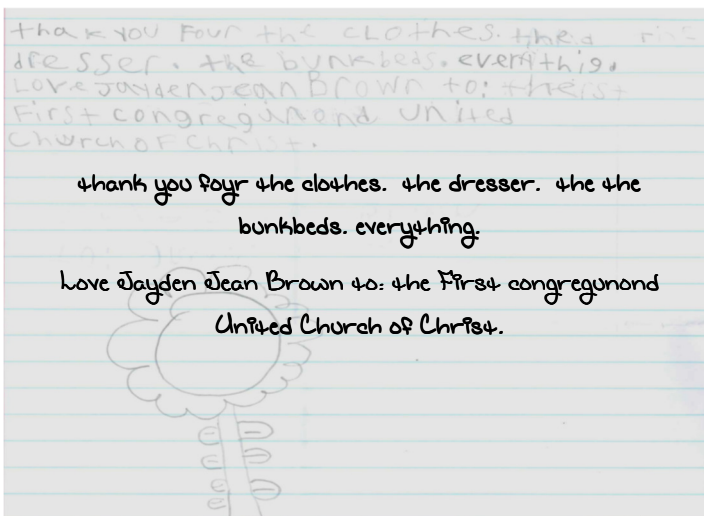 thak you Four the cLothes. the
dresser. the bunkbeds. everithig.
Love Jayden Jean Brown to: the
First congregunond United
Church OF Christ.
thank you foyr the clothes. the dresser. the the
bunkbeds. everything.
Love Jayden Jean Brown to: the First congregunond
United Church of Christ.